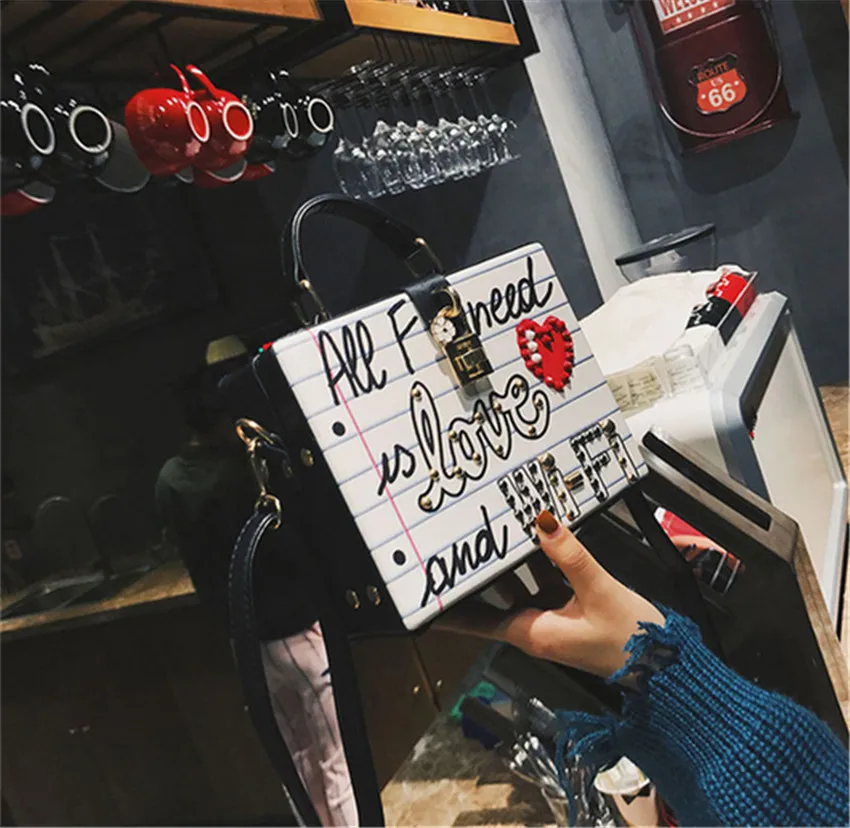 WELCO
ROUTE
US
66
All I need
is love
and Wi-Fi